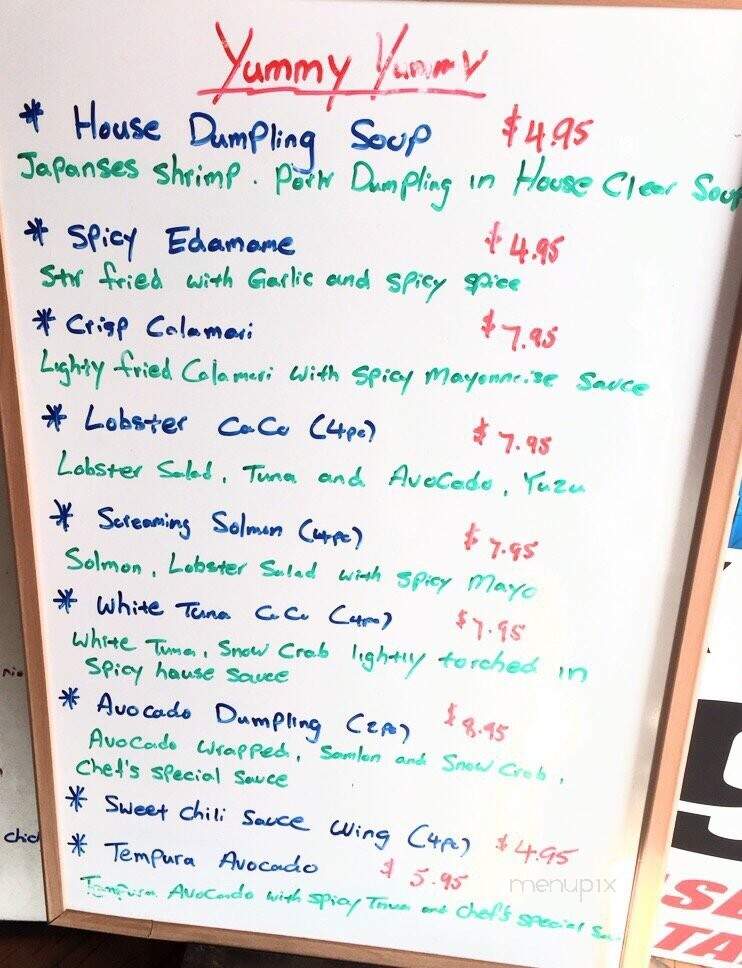 Yummy Yummy
* House Dumpling Soup $4.95
Japanses shrimp. Pork Dumpling in House Clear Soup
* Spicy Edamame $4.95
Stir fried with Garlic and spicy spice
* Crisp Calamari $7.95
Lightly fried Calamari with spicy Mayonnaise Sauce
* Lobster CaCo (4pc) $7.95
Lobster Salad, Tuna and Avocado, Yuzu
* Screaming Solmon (4pc) $7.95
Solmon, Lobster Salad with spicy Mayo
* White Tuna CaCo (4pc) $7.95
White Tuna, Snow Crab lightly torched in
spicy house sauce
* Avocado Dumpling (2pc) $8.95
Avocado wrapped, Samlon and Snow Crab,
Chef's special Sauce
* Sweet chili sauce wing (4pc) $4.95
* Tempura Avocado $5.95
Tempura Avocado with spicy Tuna and chef's special
menupix
chic
TA